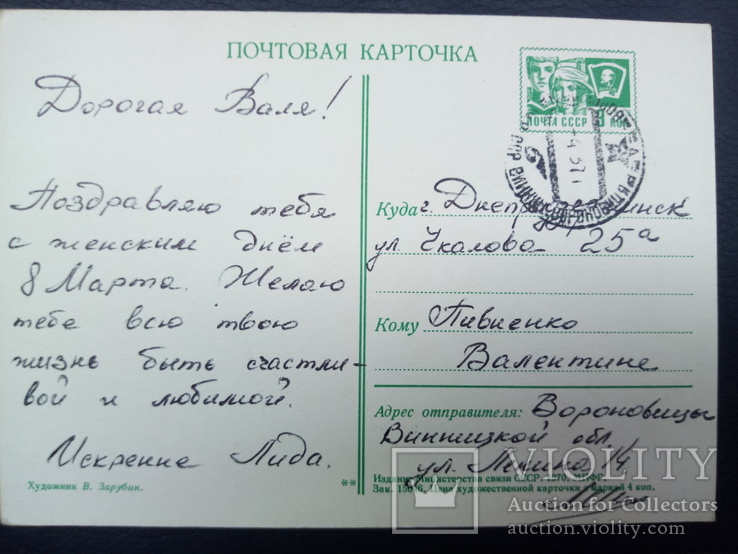 ПОЧТОВАЯ КАРТОЧКА
ПОЧТА СССР КОП
Дорогая Валя!
Поздравляю тебя
с женским днём
8 Марта. Желаю
тебе всю твою
жизнь быть счастли-
вой и любимой.
Искренне Лида.
Художник В. Зарубин.
**
Куда г.
ул. Чкалова 25а
Кому Пивненко
Валентине
Адрес отправителя: Вороновицы
Винницкой обл.
ул. Ленина 14
Издание Министерства связи СССР. 1970.
Зак. Цена художественной карточки с маркой 4 коп.
VIOLITY
Auction for Collectors
auction.violity.com